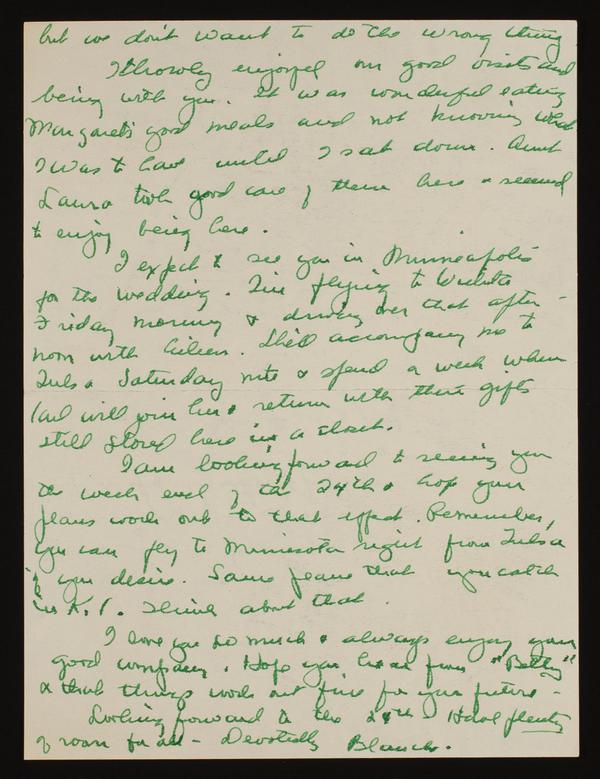 but we don't want to do the wrong thing
I throwly enjoyed our good visits and
being with you. It was wonderful eating
Margaret's good meals and not knowing what
I was to have until I sat down. Aunt
Laura took good care of them here & seemed
to enjoy being here.
I expect to see you in Minneapolis
for the wedding. I'm flying to Wichita
Friday morning & driving over that after-
noon with Eileen. She'll accompany me to
Tulsa Saturday nite & spend a week when
Carl will join her & return with their gifts
still stored here in a closet.
I am looking forward to seeing you
the week end of the 24th & hope your
plans work out to that effect. Remember,
you can fly to Minnesota right from Tulsa
if you desire. Same plane that you catch
in K.C. Think about that.
I love you so much & always enjoy your
good company. Hope you hear from "Betty"
& that things work out fine for your future -
Looking forward to the 24th - Have plenty
of room for all - Devotedly Blanche.